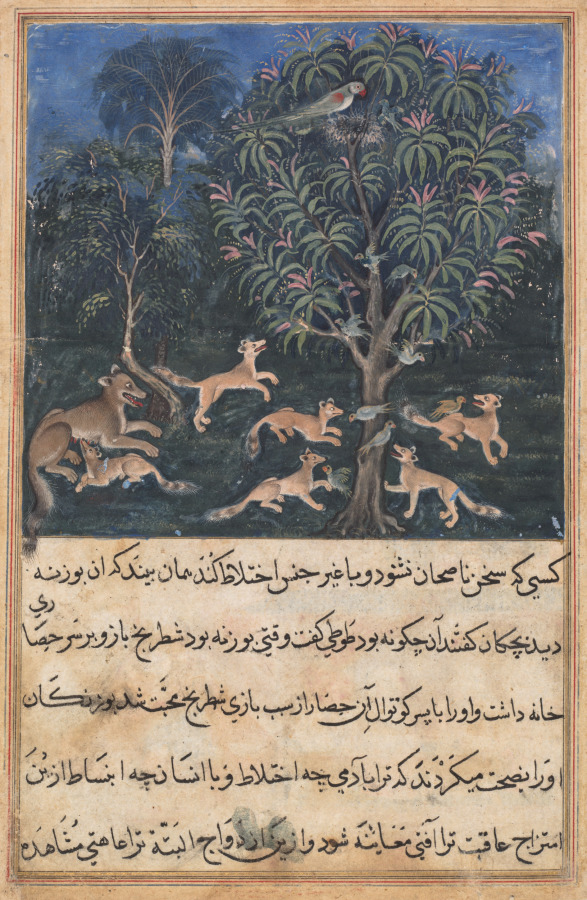 كسيي كه سخن ناصحان نشود و با غير جنس اختلاط كند همان بيند كه ان بوزنه
ديد بچكان كفتند آن چكونه بود طوطي كفت وقتي بوزنه بود شطرنج باز و بر سر حصاري
خانه داشت و اورا با پسر كوتوال آن حصار از سبب بازي شطرنج محبت شد بوزنكان
اورا نصحت ميكردند كه ترا با آدمي چه اختلاط و با انسان چه ابنساط از ين
امتزاج عاقبت ترا آفتي معاينه شود و ازين ازدواج البتة ترا عاهتي مشاهده